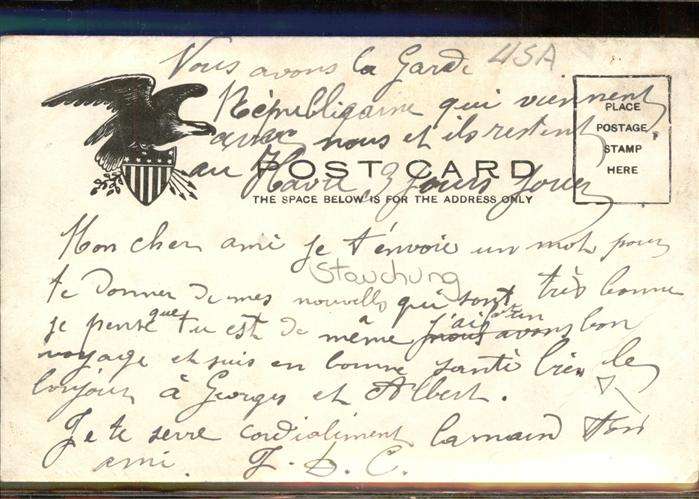 Nous avons la Garde USA
Républicaine qui viennent
avec nous et ils restent
au Havre 3 jours jouer
PLACE
POSTAGE
STAMP
HERE
POST CARD
THE SPACE BELOW IS FOR THE ADDRESS ONLY
Mon cher ami je t'envoie un mot pour
Stauchung
te donner de mes nouvelles qui sont très bonne
je pense que tu est de même nous avons j'ai fait un bon
voyage et suis en bonne santé bien le
bonjour à Georges et Albert.
Je te serre cordialiment lamain ton
ami. F. D. C.